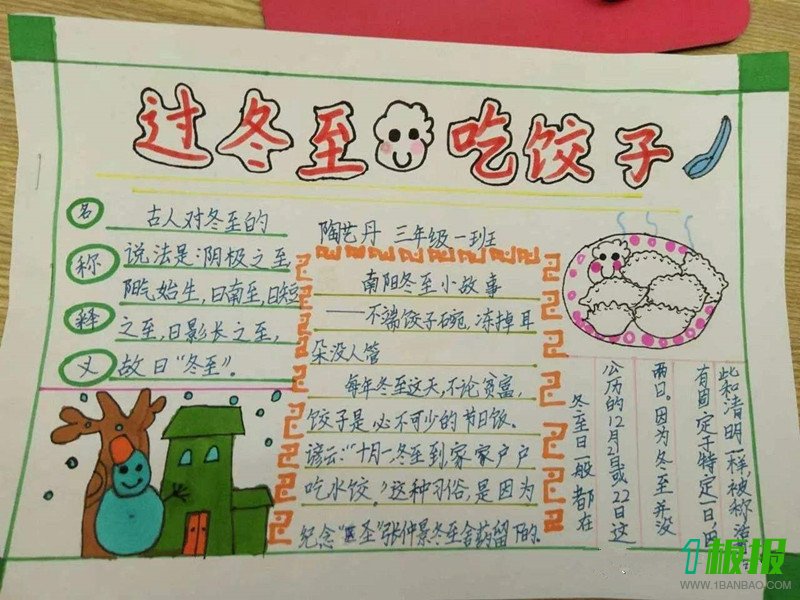 过冬至 吃饺子
名称释义
古人对冬至的
说法是:阴极之至
阳气始生,日南至,日短
之至,日影长之至,
故日“冬至”。
陶艺丹 三年级一班
南阳冬至小故事
——不端饺子碗,冻掉耳
朵没人管
每年冬至这天,不论贫富,
饺子是必不可少的节日饭。
谚云:“十月一,冬至到,家家户户
吃水饺。”这种习俗,是因为
纪念“医圣”张仲景冬至舍药留下的。
冬至日一般都在
公历的12月21日或22日这
两日。因为冬至并没
有固定于特定一日
此和清明一样,被称活
1板报
WWW.1BANBAO.COM